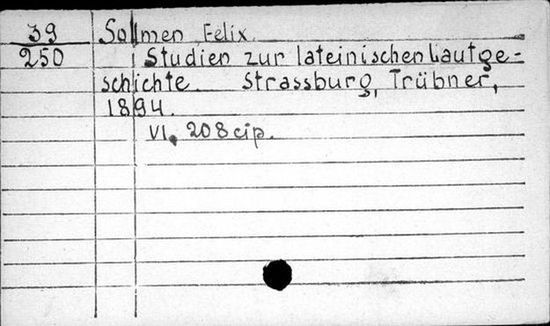 39 Sollmen Felix.
250 Studien zur lateinischen Lautge-
schichte. Strassburg, Trübner,
1894.
VI, 208 cip.